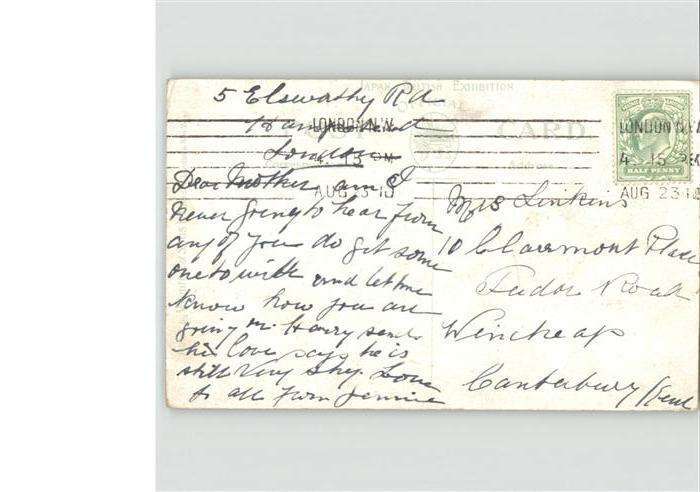 5 Elsworthy Rd
Hampstead
London
Dear Mother am I
never going to hear from
any of you do get some
one to write and let me
know how you are
going on Harry sends
his love says he is
still very shy Love
to all from Jennie
JAPAN BRITISH EXHIBITION
OFFICIAL
POST CARD
LONDON.N.W.
4. 15 PM
AUG 23 10
LONDON.N.W.
4. 15 PM
AUG 23 10
HALF PENNY
Mrs Jenkins
10 Claremont Place
Tudor Road
Wincheap
Canterbury Kent